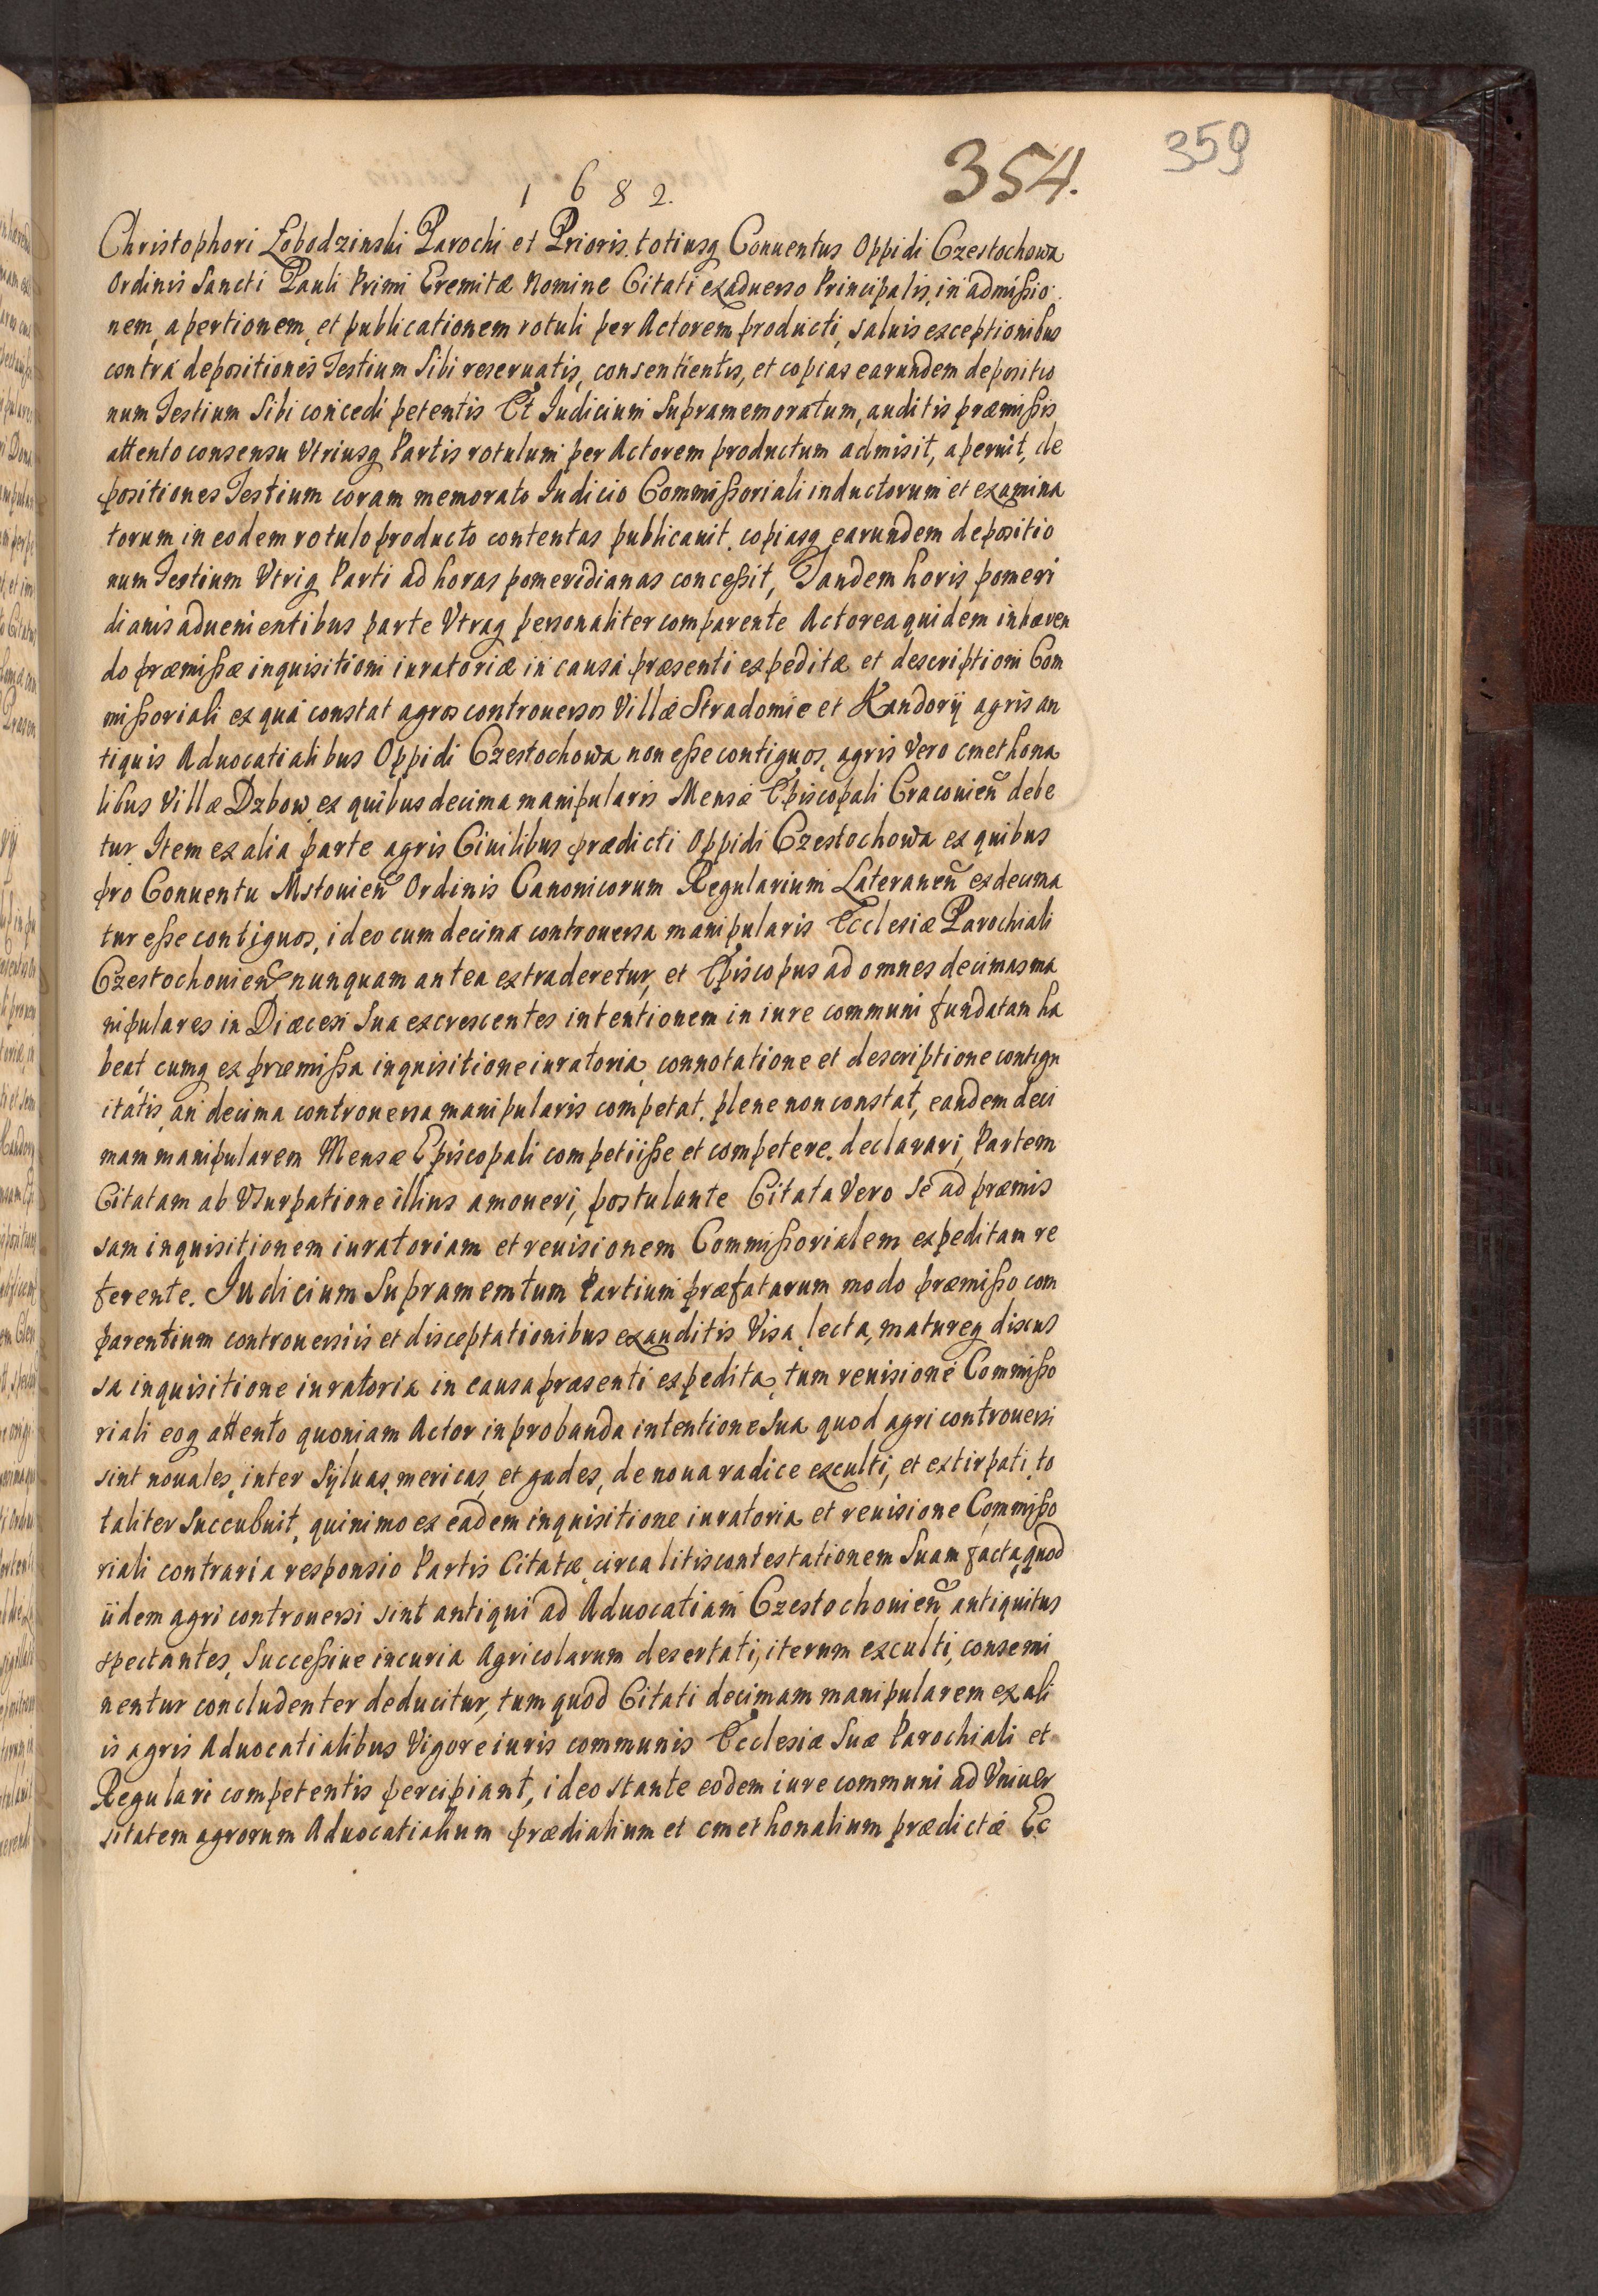 359
354.
1682.
Christophori Lobodzinski Parochi et Prioris. totiusq Conuentus Oppidi Czestochowa
Ordinis Sancti Pauli Primi Eremitæ Nomine Citati exaduerso Principalis, in admißio
nem, apertionem, et publicationem rotuli per Actorem producti, saluis exceptionibus
contra depositiones Testium Sibi reseruatis, consentientis, et copias earundem depositio
num Testium Sibi concedi petentis Et Iudicium Supramemoratum, auditis præmißis
attento consensu Vtriusq Partis rotulum per Actorem productum admisit, aperuit, de
positiones Testium coram memorato Iudicio Commißoriali inductorum et examina
torum in eodem rotulo producto contentas publicauit. copiasq earundem depositio
num Testium Vtriq Parti ad horas pomeridianas conceßit, Tandem horis pomeri
dianis aduenientibus parte Vtraq personaliter comparente Actorea quidem inhæren
do præmißæ inquisitioni iuratoriæ in causa præsenti expeditæ et descriptioni Com
mißoriali ex qua constat agros controuersos Villæ Stradomie et Kandorÿ agris an
tiquis Aduocatialibus Oppidi Czestochowa non eße contiguos, agris Vero cmethona
libus Villæ Dzbow ex quibus decima manipularis Mensæ Episcopali Cracouien debe
tur. Item ex alia parte agris Ciuilibus prædicti Oppidi Czestochowa ex quibus
pro Conuentu Mstouien Ordinis Canonicorum Regularium Lateranen exdecima
tur eße contiguos, ideo cum decima controuersa manipularis Ecclesiæ Parochiali
Czestochouien nunquam antea extraderetur, et Episcopus ad omnes decimas ma
nipulares in Diæcesi Sua excrescentes intentionem in iure communi fundatam ha
beat cumq ex præmißa inquisitione iuratoria, connotatione et descriptione contigu
itatis, an decima controuersa manipularis competat. plene non constat, eandem deci
mam manipularem Mensæ Episcopali competiiße et competere. declarari, Partem
Citatam ab Vsurpatione illius amoueri, postulante Citata Vero se ad præmis
sam inquisitionem iuratoriam et reuisionem Commißorialem expeditam re
ferente. Iudicium Supramemtum Partium præfatarum modo præmißo com
parentium controuersiis et disceptationibus exauditis Visa, lecta, matureq discus
sa inquisitione iuratoria in causa præsenti expedita, tum reuisione Commißo
riali eoq attento quoniam Actor in probanda intentione Sua quod agri controuersi
sint nouales, inter Syluas, mericas, et gades, de noua radice exculti, et extirpati, to
taliter Succubuit, quinimo ex eadem inquisitione iuratoria et reuisione Commißo
riali contraria responsio Partis Citatæ circa litiscontestationem Suam facta, quod
iidem agri controuersi sint antiqui ad Aduocatiam Czestochouien antiquitus
spectantes, Succeßiue incuria Agricolarum desertati, iterum exculti, consemi
nentur concludenter deducitur, tum quod Citati decimam manipularem ex ali
is agris Aduocatialibus Vigore iuris communis Ecclesiæ Suæ Parochiali et
Regulari competentis percipiant, ideo stante eodem iure communi ad Vniuer
sitatem agrorum Aduocatialium prædialium et cmethonalium prædictæ Ec